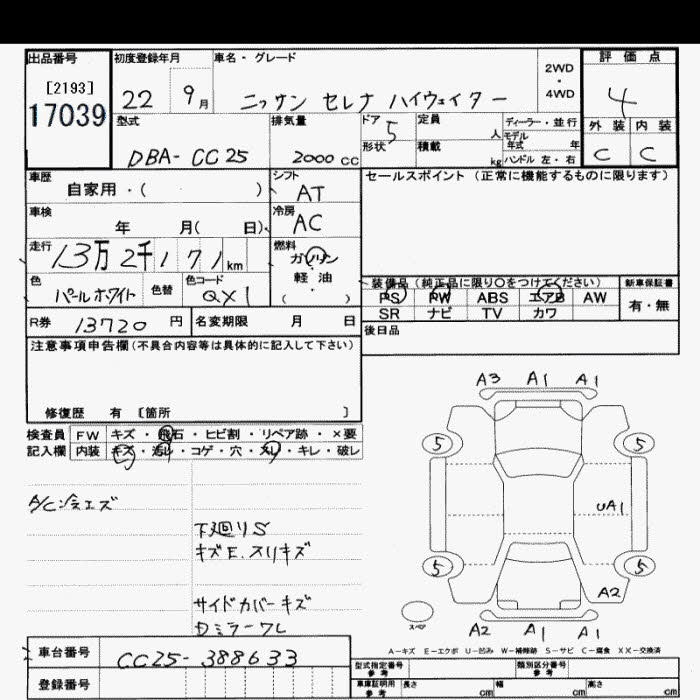 出品番号 初度登録年月 車名・グレード 2WD・4WD 評価点
[2193] 22 9月 ニッサン セレナ ハイウェイスター 4
17039 型式 排気量 ドア 5 定員 人 ディーラー・並行 外装 内装
DBA-CC25 2000cc 形状 積載 kg モデル年式 年 ハンドル 左・右 C C
車歴 自家用・( ) シフト AT セールスポイント(正常に機能するものに限ります)
車検 年 月( 日) 冷房 AC
走行 13万2千171km 燃料 ガソリン
軽・油
( )
色 パールホワイト 色替 色コード QX1
装備品(純正品に限り○をつけてください) 新車保証書
PS PW ABS エアB AW 有・無
SR ナビ TV カワ
R券 13720円 名変期限 月 日 後日品
注意事項申告欄(不具合内容等は具体的に記入して下さい)
修復歴 有 〔箇所 〕
検査員 FW キズ・飛石・ヒビ割・リペア跡・×要
記入欄 内装 キズ・汚レ・コゲ・穴・スレ・キレ・破レ
A/C冷エズ
下廻りS
キズE.スリキズ
サイドカバーキズ
Dミラーワレ
A3 A1 A1
5 5
UA1
5 5
A2
スペア
A2 A1 A1
A-キズ E-エクボ U-凹み W-補修跡 S-サビ C-腐食 XX-交換済
車台番号 CC25-388633
型式指定番号 参考 類別区分番号 参考
登録番号 車庫証明用 参考 長さ cm 幅 cm 高さ cm